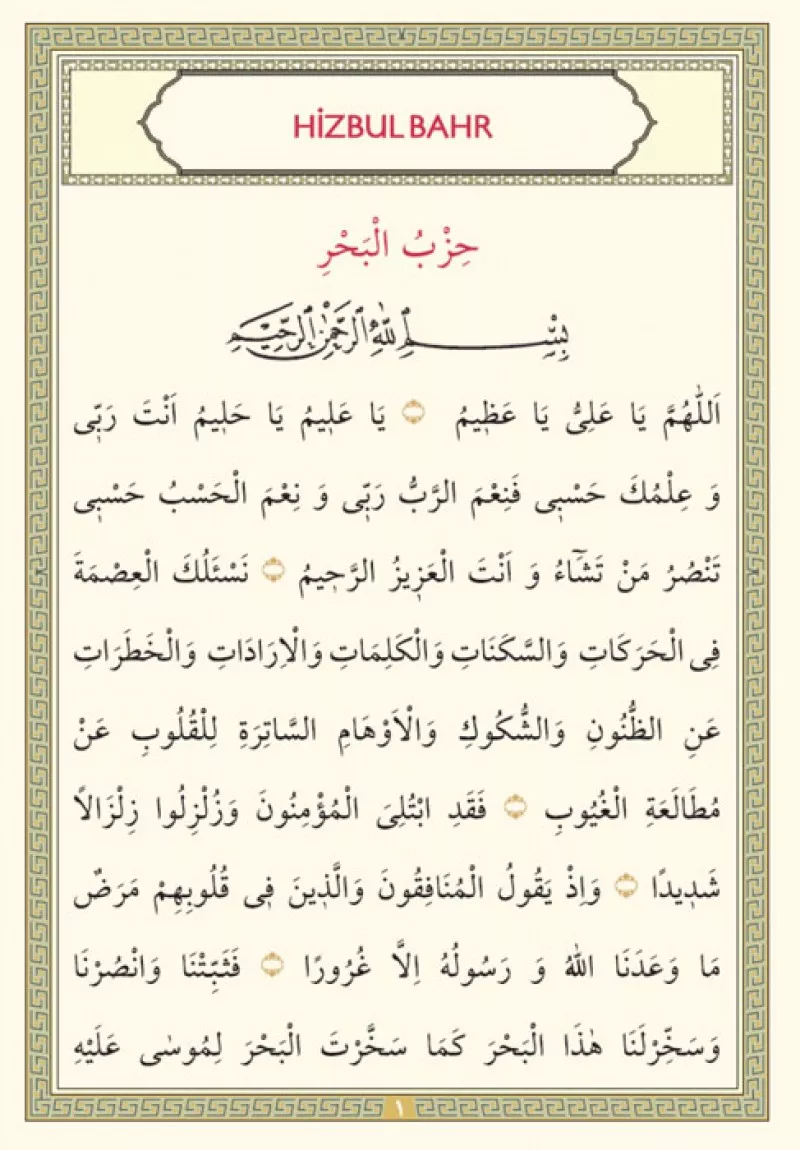 HİZBUL BAHR
حِزْبُ الْبَحْرِ
بِسْمِ اللّٰهِ الرَّحْمٰنِ الرَّحِيمِ
اَللّٰهُمَّ يَا عَلِىُّ يَا عَظٖيمُ ۝ يَا عَلٖيمُ يَا حَلٖيمُ اَنْتَ رَبّٖى
وَ عِلْمُكَ حَسْبٖى فَنِعْمَ الرَّبُّ رَبّٖى وَ نِعْمَ الْحَسْبُ حَسْبٖى
تَنْصُرُ مَنْ تَشَٓاءُ وَ اَنْتَ الْعَزٖيزُ الرَّحٖيمُ ۝ نَسْئَلُكَ الْعِصْمَةَ
فِى الْحَرَكَاتِ وَالسَّكَنَاتِ وَالْكَلِمَاتِ وَالْاِرَادَاتِ وَالْخَطَرَاتِ
عَنِ الظُّنُونِ وَالشُّكُوكِ وَالْاَوْهَامِ السَّاتِرَةِ لِلْقُلُوبِ عَنْ
مُطَالَعَةِ الْغُيُوبِ ۝ فَقَدِ ابْتُلِىَ الْمُؤْمِنُونَ وَزُلْزِلُوا زِلْزَالًا
شَدٖيدًا ۝ وَاِذْ يَقُولُ الْمُنَافِقُونَ وَالَّذٖينَ فٖى قُلُوبِهِمْ مَرَضٌ
مَا وَعَدَنَا اللّٰهُ وَ رَسُولُهُ اِلَّا غُرُورًا ۝ فَثَبِّتْنَا وَانْصُرْنَا
وَسَخِّرْلَنَا هٰذَا الْبَحْرَ كَمَا سَخَّرْتَ الْبَحْرَ لِمُوسٰى عَلَيْهِ
١